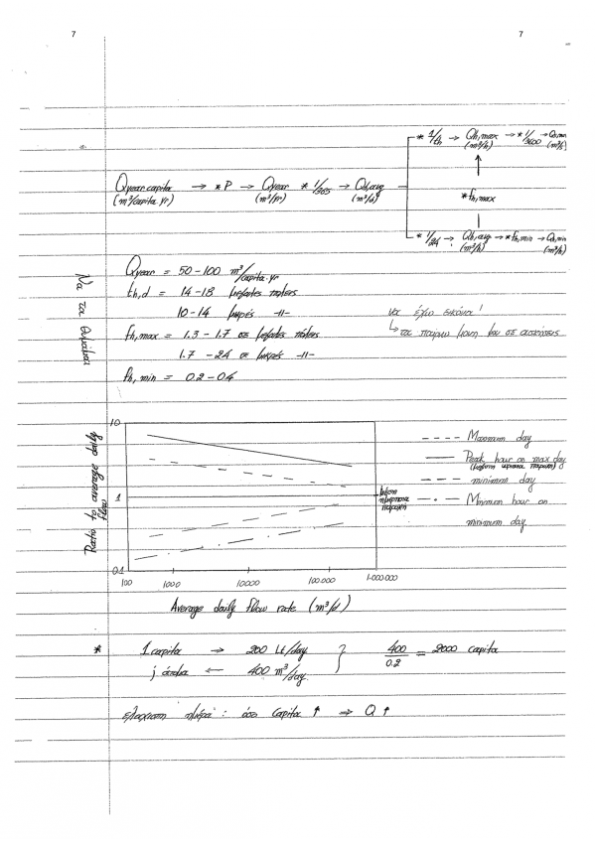 7 7
* 1/th → Qh,max → * 1/3600 → Qh,max
(m³/h) (m³/s)
Qyear,capita → * P → Qyear * 1/365 → Qd,avg
(m³/capita.yr) (m³/yr) (m³/d)
* fh,max
* 1/24 → Qh,avg → * fh,min → Qh,min
(m³/h) (m³/h)
Να τα θυμάμαι
Qyear = 50-100 m³/capita.yr
th,d = 14-18 μεγάλες πόλεις
10-14 μικρές -11-
fh,max = 1.3-1.7 σε μεγάλες πόλεις
1.7 -24 σε μικρές -11-
fh,min = 02-04
να έχω εικόνα!
10
1
0.1
100 1000 10000 100.000 1.000.000
Ratio of average daily flow
Average daily flow rate (m³/d)
---- Maximum day
—— Peak hour on max day
---- minimum day
— · — Minimum hour on
minimum day
* 1.capita → 200 Lt/day
j άτομα ← 400 m³/day
400/0.2 = 2000 capita
ελάχιστη ημέρα: όσο Capita ↑ ⇒ Q ↑